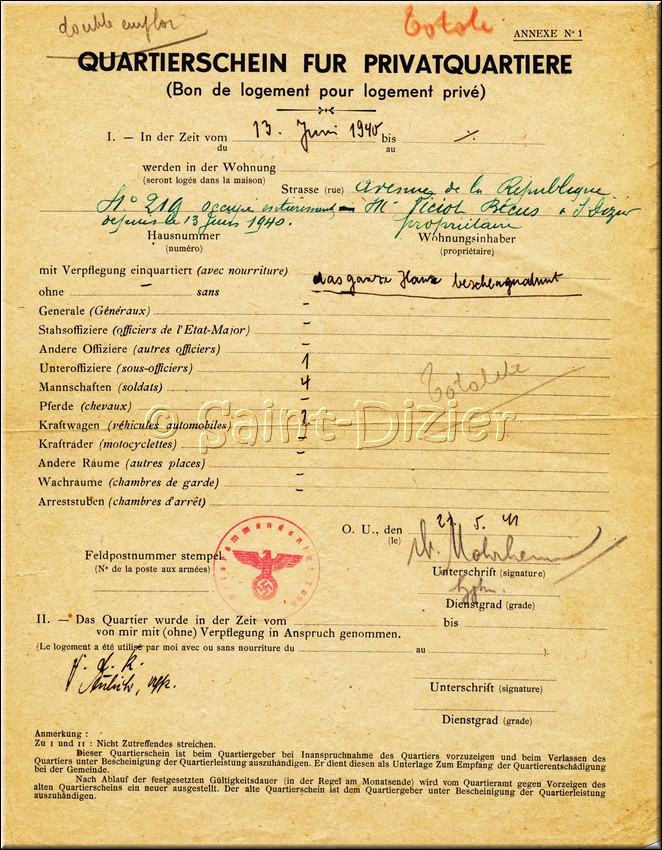 double emploi
Totale
ANNEXE N° 1
QUARTIERSCHEIN FUR PRIVATQUARTIERE
(Bon de logement pour logement privé)
I. — In der Zeit vom 13. Juni 1940 bis
du au
werden in der Wohnung
(seront logés dans la maison)
Strasse (rue) Avenue de la République
N° 219 occupé entièrement M. Becus à St Dizier
depuis le 13 Juin 1940. propriétaire
Hausnummer Wohnungsinhaber
(numéro) (propriétaire)
mit Verpflegung einquartiert (avec nourriture) das ganze Haus beschlagnahmt
ohne — sans
Generale (Généraux) –
Stahsoffiziere (officiers de l'Etat-Major) –
Andere Offiziere (autres officiers) –
Unteroffiziere (sous-officiers) 1
Mannschaften (soldats) 4
Totale
Pferde (chevaux) –
Kraftwagen (véhicules automobiles)
© Saint-Dizier
Krafträder (motocyclettes) –
Andere Räume (autres places) –
Wachräume (chambres de garde) –
Arreststuben (chambres d'arrêt) –
O. U., den 27. 5. 41
(le)
Feldpostnummer stempel
(N° de la poste aux armées)
Unterschrift (signature)
Dienstgrad (grade)
II. — Das Quartier wurde in der Zeit vom bis
von mir mit (ohne) Verpflegung in Anspruch genommen.
(Le logement a été utilisé par moi avec ou sans nourriture du au ).
Unterschrift (signature)
Dienstgrad (grade)
Anmerkung :
Zu I und II : Nicht Zutreffendes streichen.
Dieser Quartierschein ist beim Quartiergeber bei Inanspruchnahme des Quartiers vorzuzeigen und beim Verlassen des
Quartiers unter Bescheinigung der Quartierleistung auszuhändigen. Er dient diesen als Unterlage Zum Empfang der Quartierentschädigung
bei der Gemeinde.
Nach Ablauf der festgesetzten Gültigkeitsdauer (in der Regel am Monatsende) wird vom Quartieramt gegen Vorzeigen des
alten Quartierscheins ein neuer ausgestellt. Der alte Quartierschein ist dem Quartiergeber unter Bescheinigung der Quartierleistung
auszuhändigen.